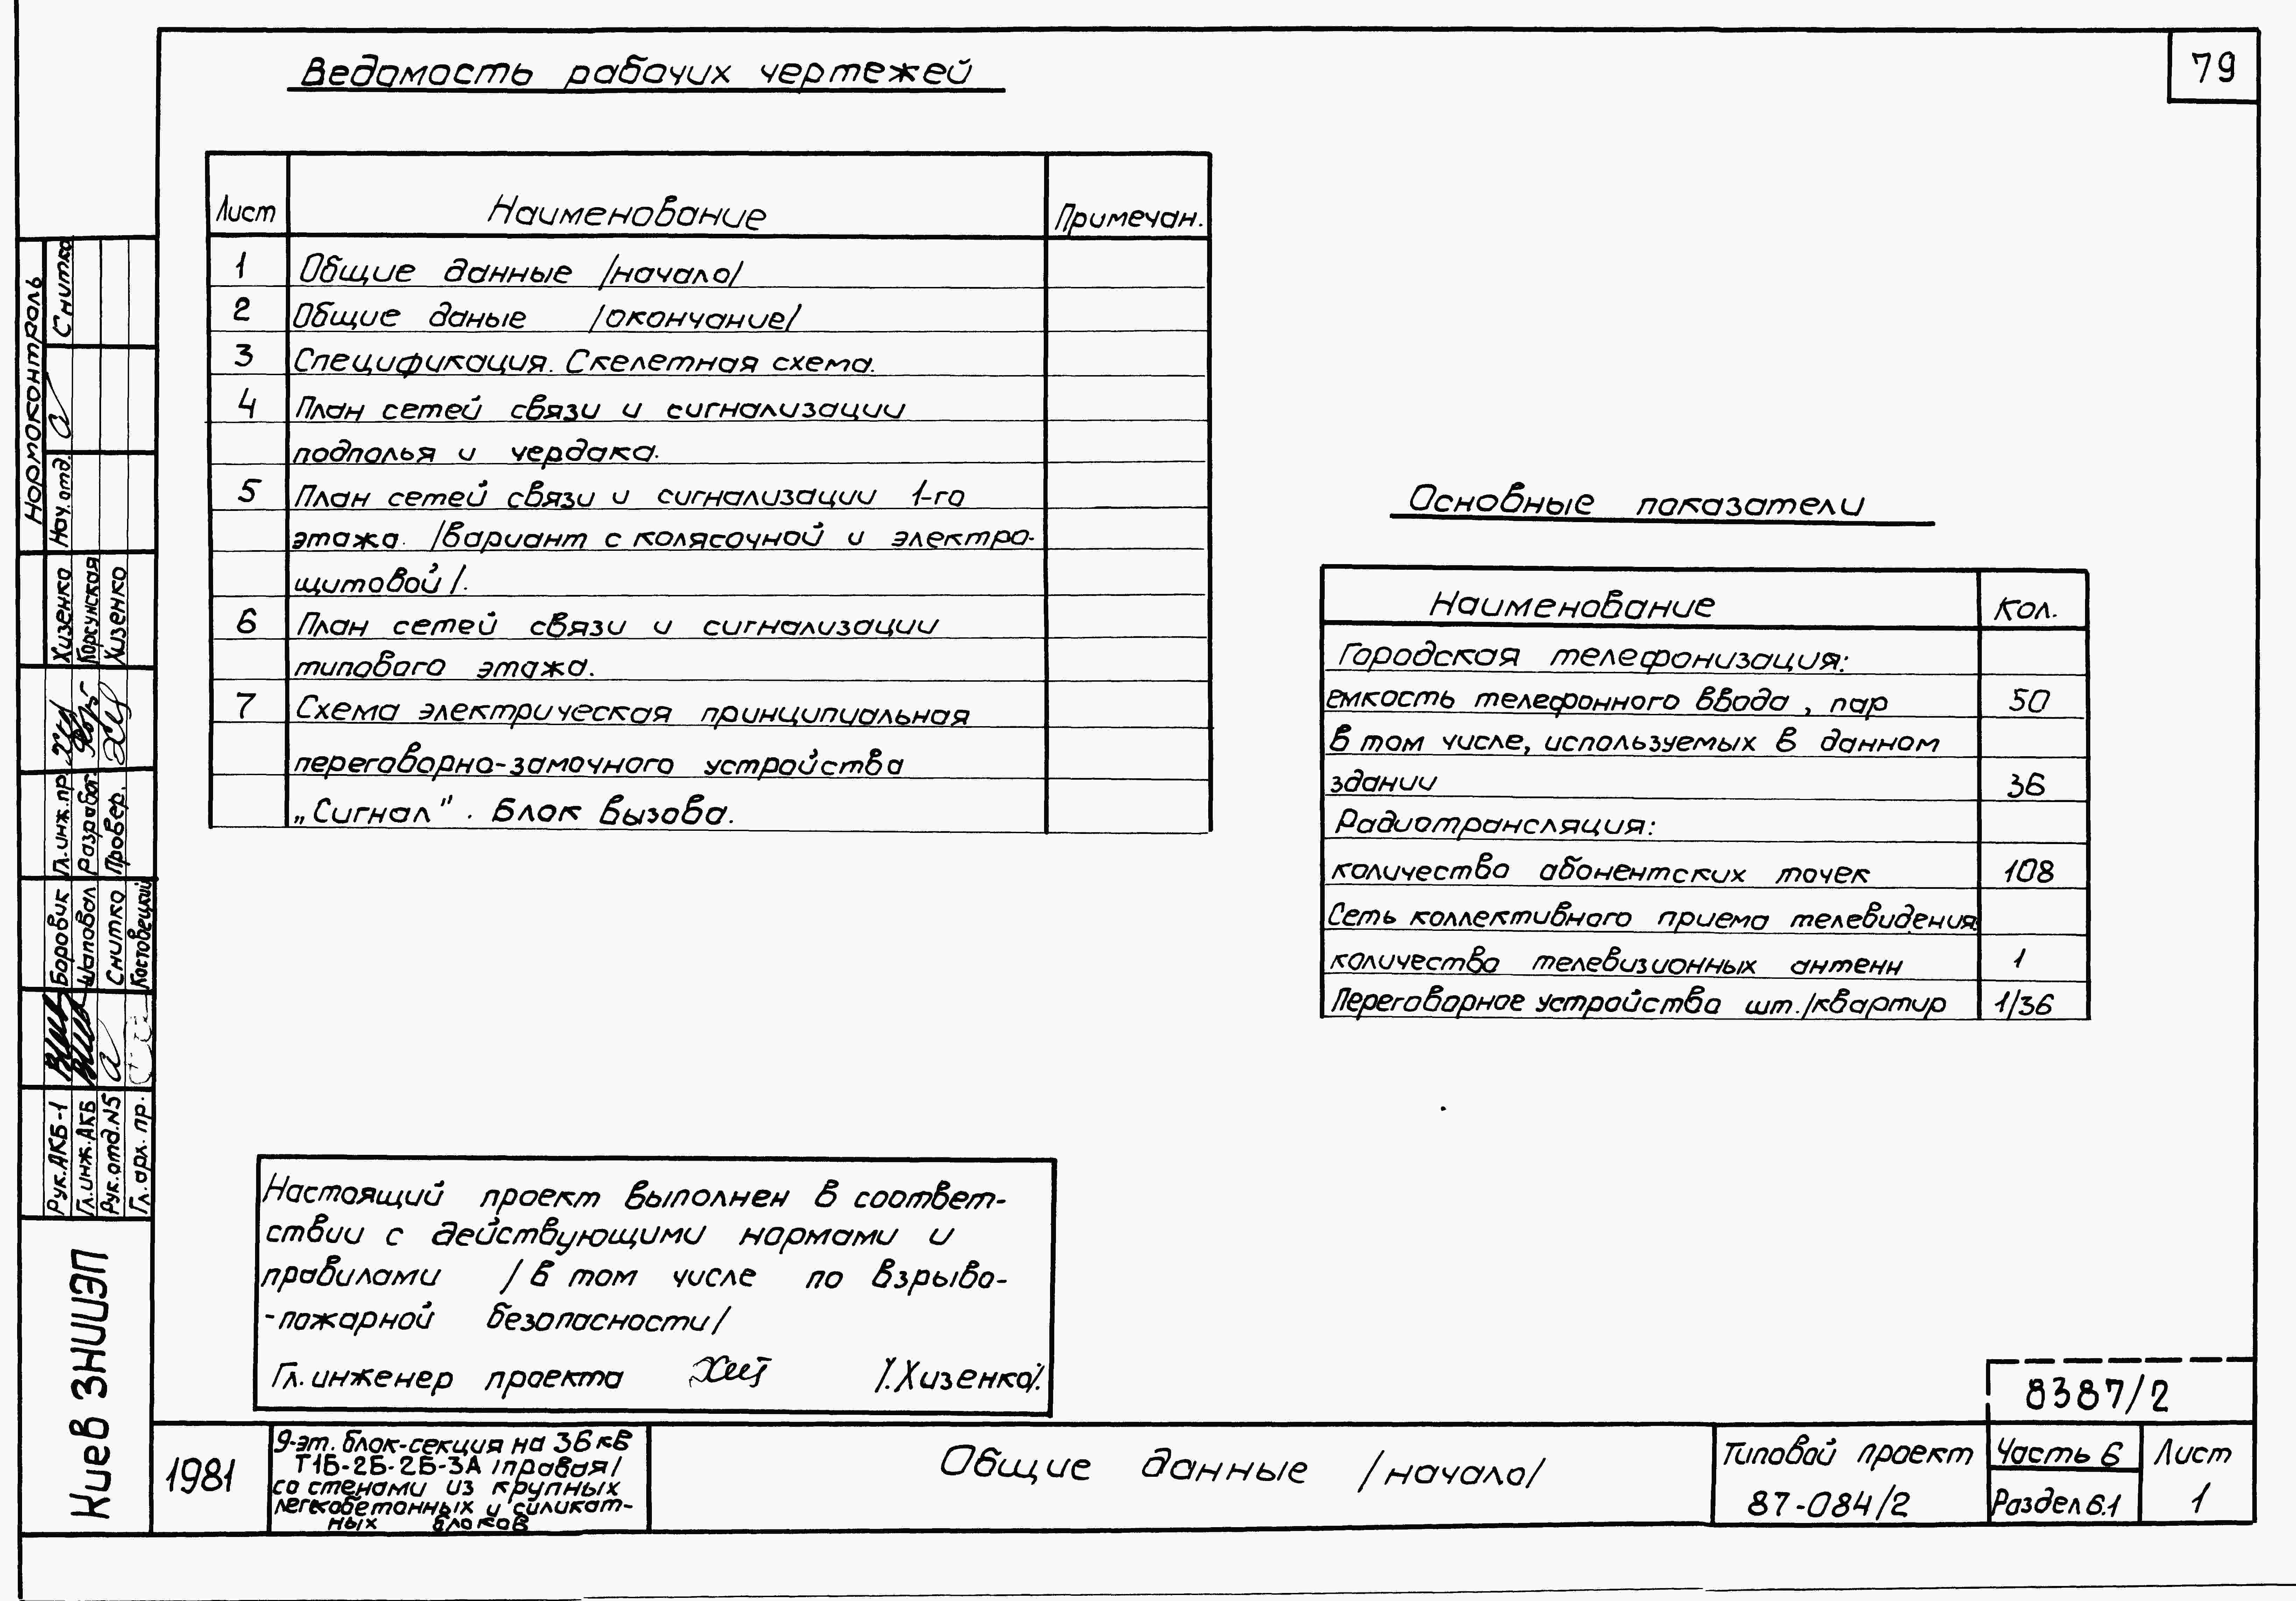 79
Ведомость рабочих чертежей
Лист Наименование Примечан.
1 Общие данные /начало/
2 Общие даные /окончание/
3 Спецификация. Скелетная схема.
4 План сетей связи и сигнализации
подполья и чердака.
5 План сетей связи и сигнализации 1-го
этажа. /вариант с колясочной и электро-
щитовой/.
6 План сетей связи и сигнализации
типового этажа.
7 Схема электрическая принципиальная
переговорно-замочного устройства
„Сигнал". Блок вызова.
Основные показатели
Наименование Кол.
Городская телефонизация:
емкость телефонного ввода, пар 50
В том числе, используемых в данном
здании 36
Радиотрансляция:
количество абонентских точек 108
Сеть коллективного приема телевидения
количество телевизионных антенн 1
Переговорное устройство шт./квартир 1/36
Настоящий проект выполнен в соответ-
ствии с действующими нормами и
правилами /в том числе по взрыво-
-пожарной безопасности/
Гл. инженер проекта /.Хизенко/.
8387/2
1981
9-эт. блок-секция на 36 кв
Т1Б-2Б-2Б-3А /правая/
со стенами из крупных
легкобетонных и силикат-
ных блоков
Общие данные /начало/
Типовой проект
87-084/2
Часть 6
Раздел 6.1
Лист
1
Киев ЗНИИЭП
Нормоконтроль
Нач. отд. Снитко
Гл. инж. пр. Хизенко
Разработ. Корсунская
Провер. Хизенко
Рук. АКБ-1 Боровик
Гл. инж. АКБ Шаповал
Рук. отд. N5 Снитко
Гл. арх. пр. Костовецкий